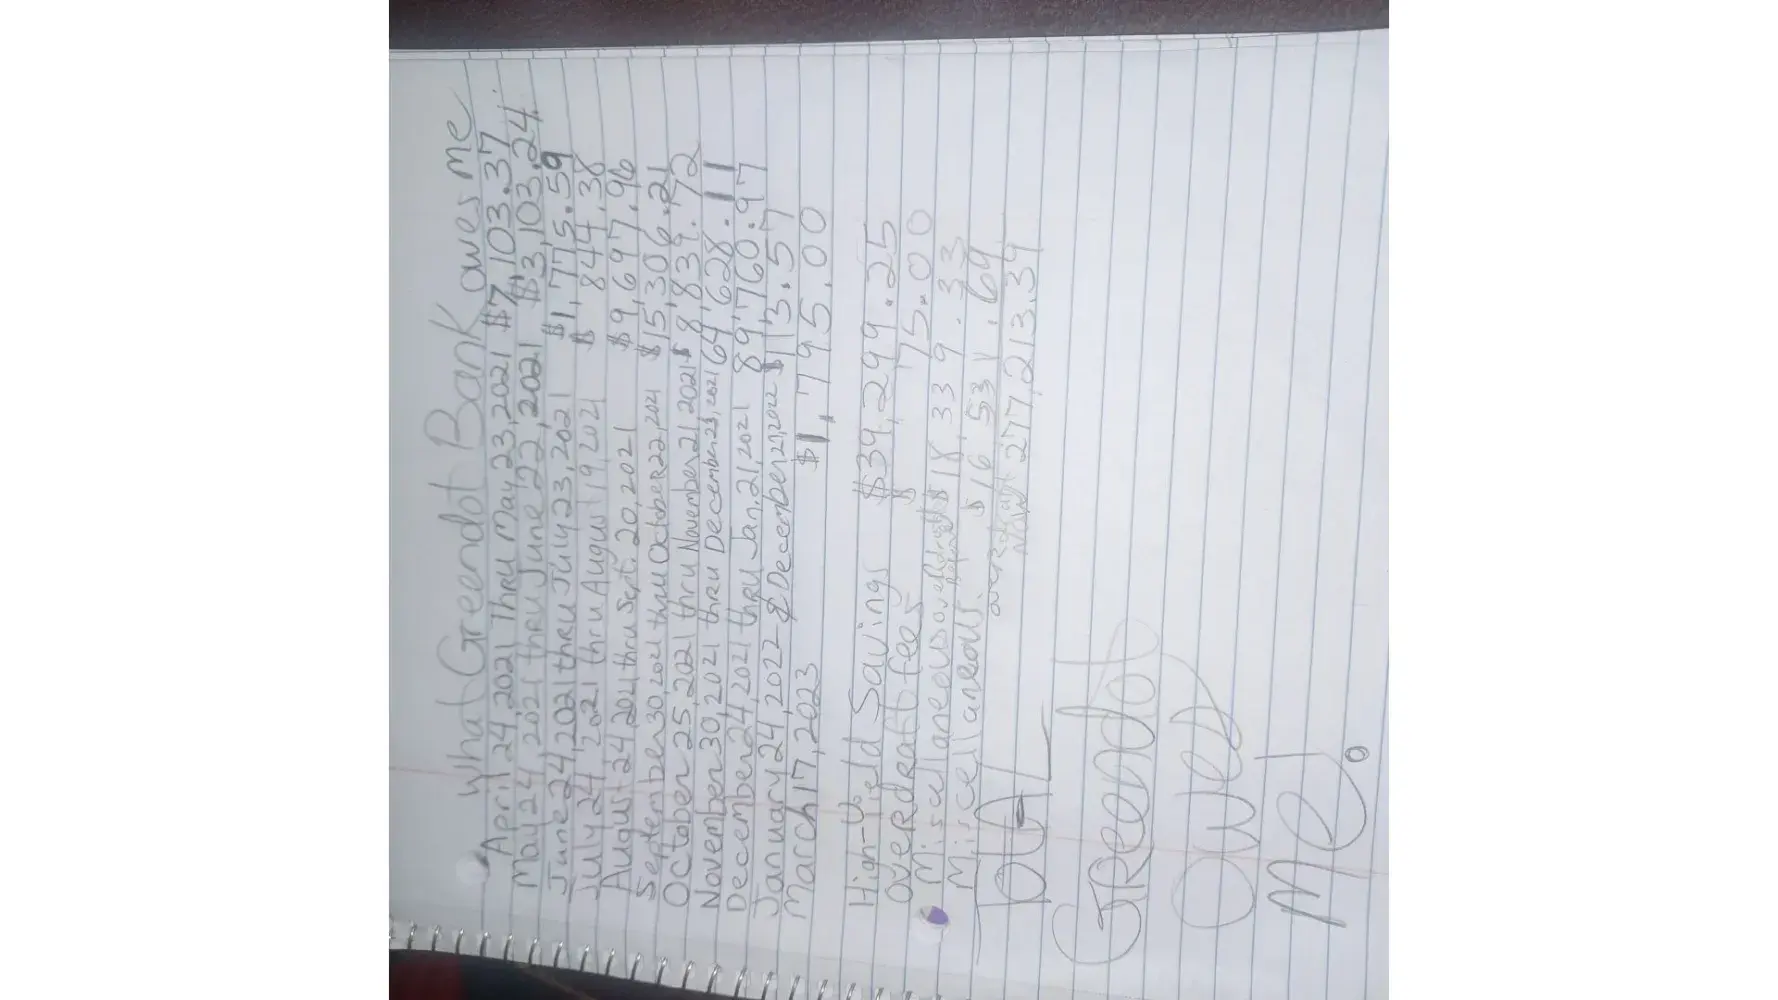 What Greendot Bank owes me
April 24, 2021 Thru May 23, 2021 $7,103.37
May 24, 2021 thru June 22, 2021 $3,103.24
June 24, 2021 thru July 23, 2021 $1,775.59
July 24, 2021 thru August 19 2021 $844.38
August 24 2021 thru Sept. 20, 2021 $9,697.96
September 30 2021 thru October 22, 2021 $15,306.21
October 25, 2021 thru November 21, 2021 $8,839.72
November 30, 2021 thru December 23, 2021 64,628.11
December 24, 2021 thru Jan. 21, 2021 89,760.97
January 24, 2022 & December 27, 2022 $113.57
March 17, 2023 $1,795.00
High-Yield Savings $39,299.25
Overdraft fees $75.00
Miscellaneous overdraft Before $18,339.33
Miscellaneous overdraft NOW $16,531.69
Total 277,213.39
Greendot
Owes
Me!